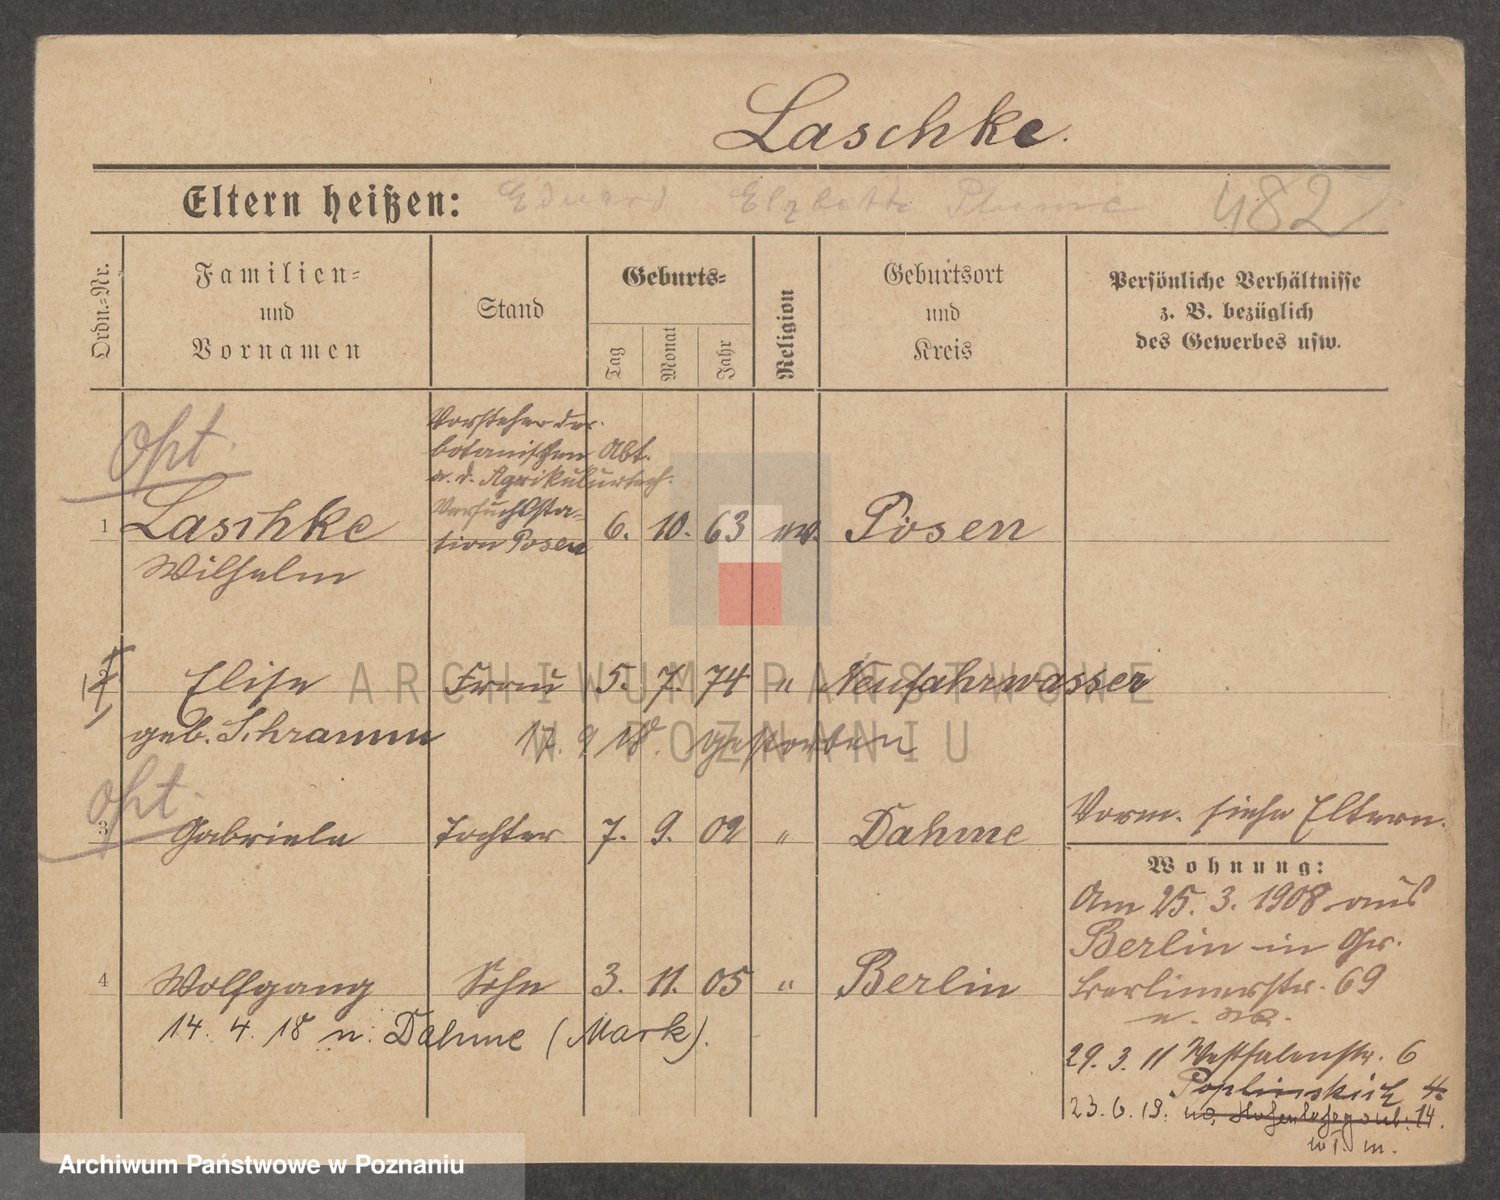 Laschke.
Eltern heißen: Eduard 482
Ordn.=Nr.
Familien=
und
Vornamen
Stand
Geburts=
Tag
Monat
Jahr
Religion
Geburtsort
und
Kreis
Persönliche Verhältnisse
z. B. bezüglich
des Gewerbes usw.
Opt.
Vorsteher der
botanischen Abt.
a. d. Agrikulturtech.
Versuchssta-
tion Posen
1 Laschke 6. 10. 63 ev. Posen
Wilhelm
2 Elise Frau 5. 7. 74 " Neufahrwasser
geb. Schramm 17. 9 18. gestorben
Opt.
3 Gabriele Tochter 7. 9. 02 " Dahme
Vorm. siehe Eltern.
Wohnung:
Am 25. 3. 1908 aus
Berlin in Gr.
Berlinerstr. 69
4 Wolfgang Sohn 3. 11. 05 " Berlin
14. 4. 18 n. Dahme (Mark).
29. 3. 11 Westfalenstr. 6
23. 6. 19. 14.
ARCHIWUM PAŃSTWOWE
W POZNANIU
Archiwum Państwowe w Poznaniu